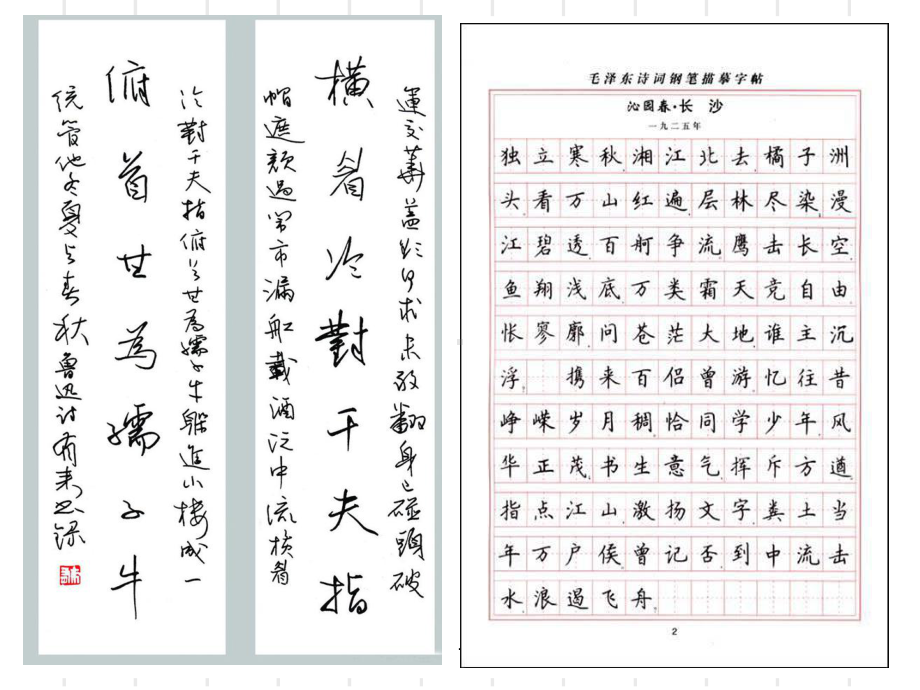 運交華蓋欲何求未敢翻身已碰頭破
橫眉冷對千夫指
帽遮顏過鬧市漏船載酒泛中流橫眉
冷對千夫指俯首甘為孺子牛躲進小樓成一
俯首甘為孺子牛
統管他冬夏与春秋魯迅詩
毛泽东诗词钢笔描摹字帖
沁园春·长 沙
一九二五年
独立寒秋,湘江北去,橘子洲
头。看万山红遍,层林尽染,漫
江碧透,百舸争流。鹰击长空,
鱼翔浅底,万类霜天竞自由。
怅寥廓,问苍茫大地,谁主沉
浮。 携来百侣曾游,忆往昔
峥嵘岁月稠。恰同学少年,风
华正茂,书生意气,挥斥方遒。
指点江山,激扬文字,粪土当
年万户侯。曾记否,到中流击
水,浪遏飞舟。
2